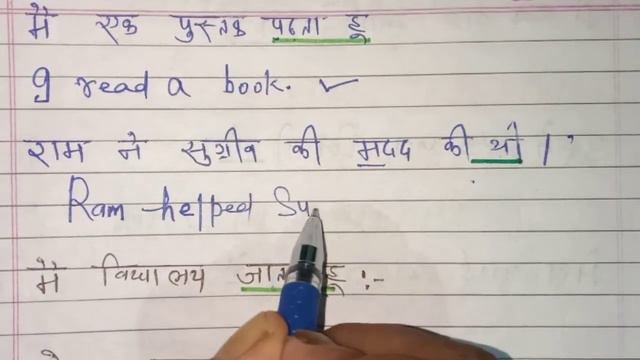 मै एक पुस्तक पढता हू
I read a book.
राम ने सुग्रीव की मदद की थी ।
Ram helped Su
मै विद्यालय जाता हू :-